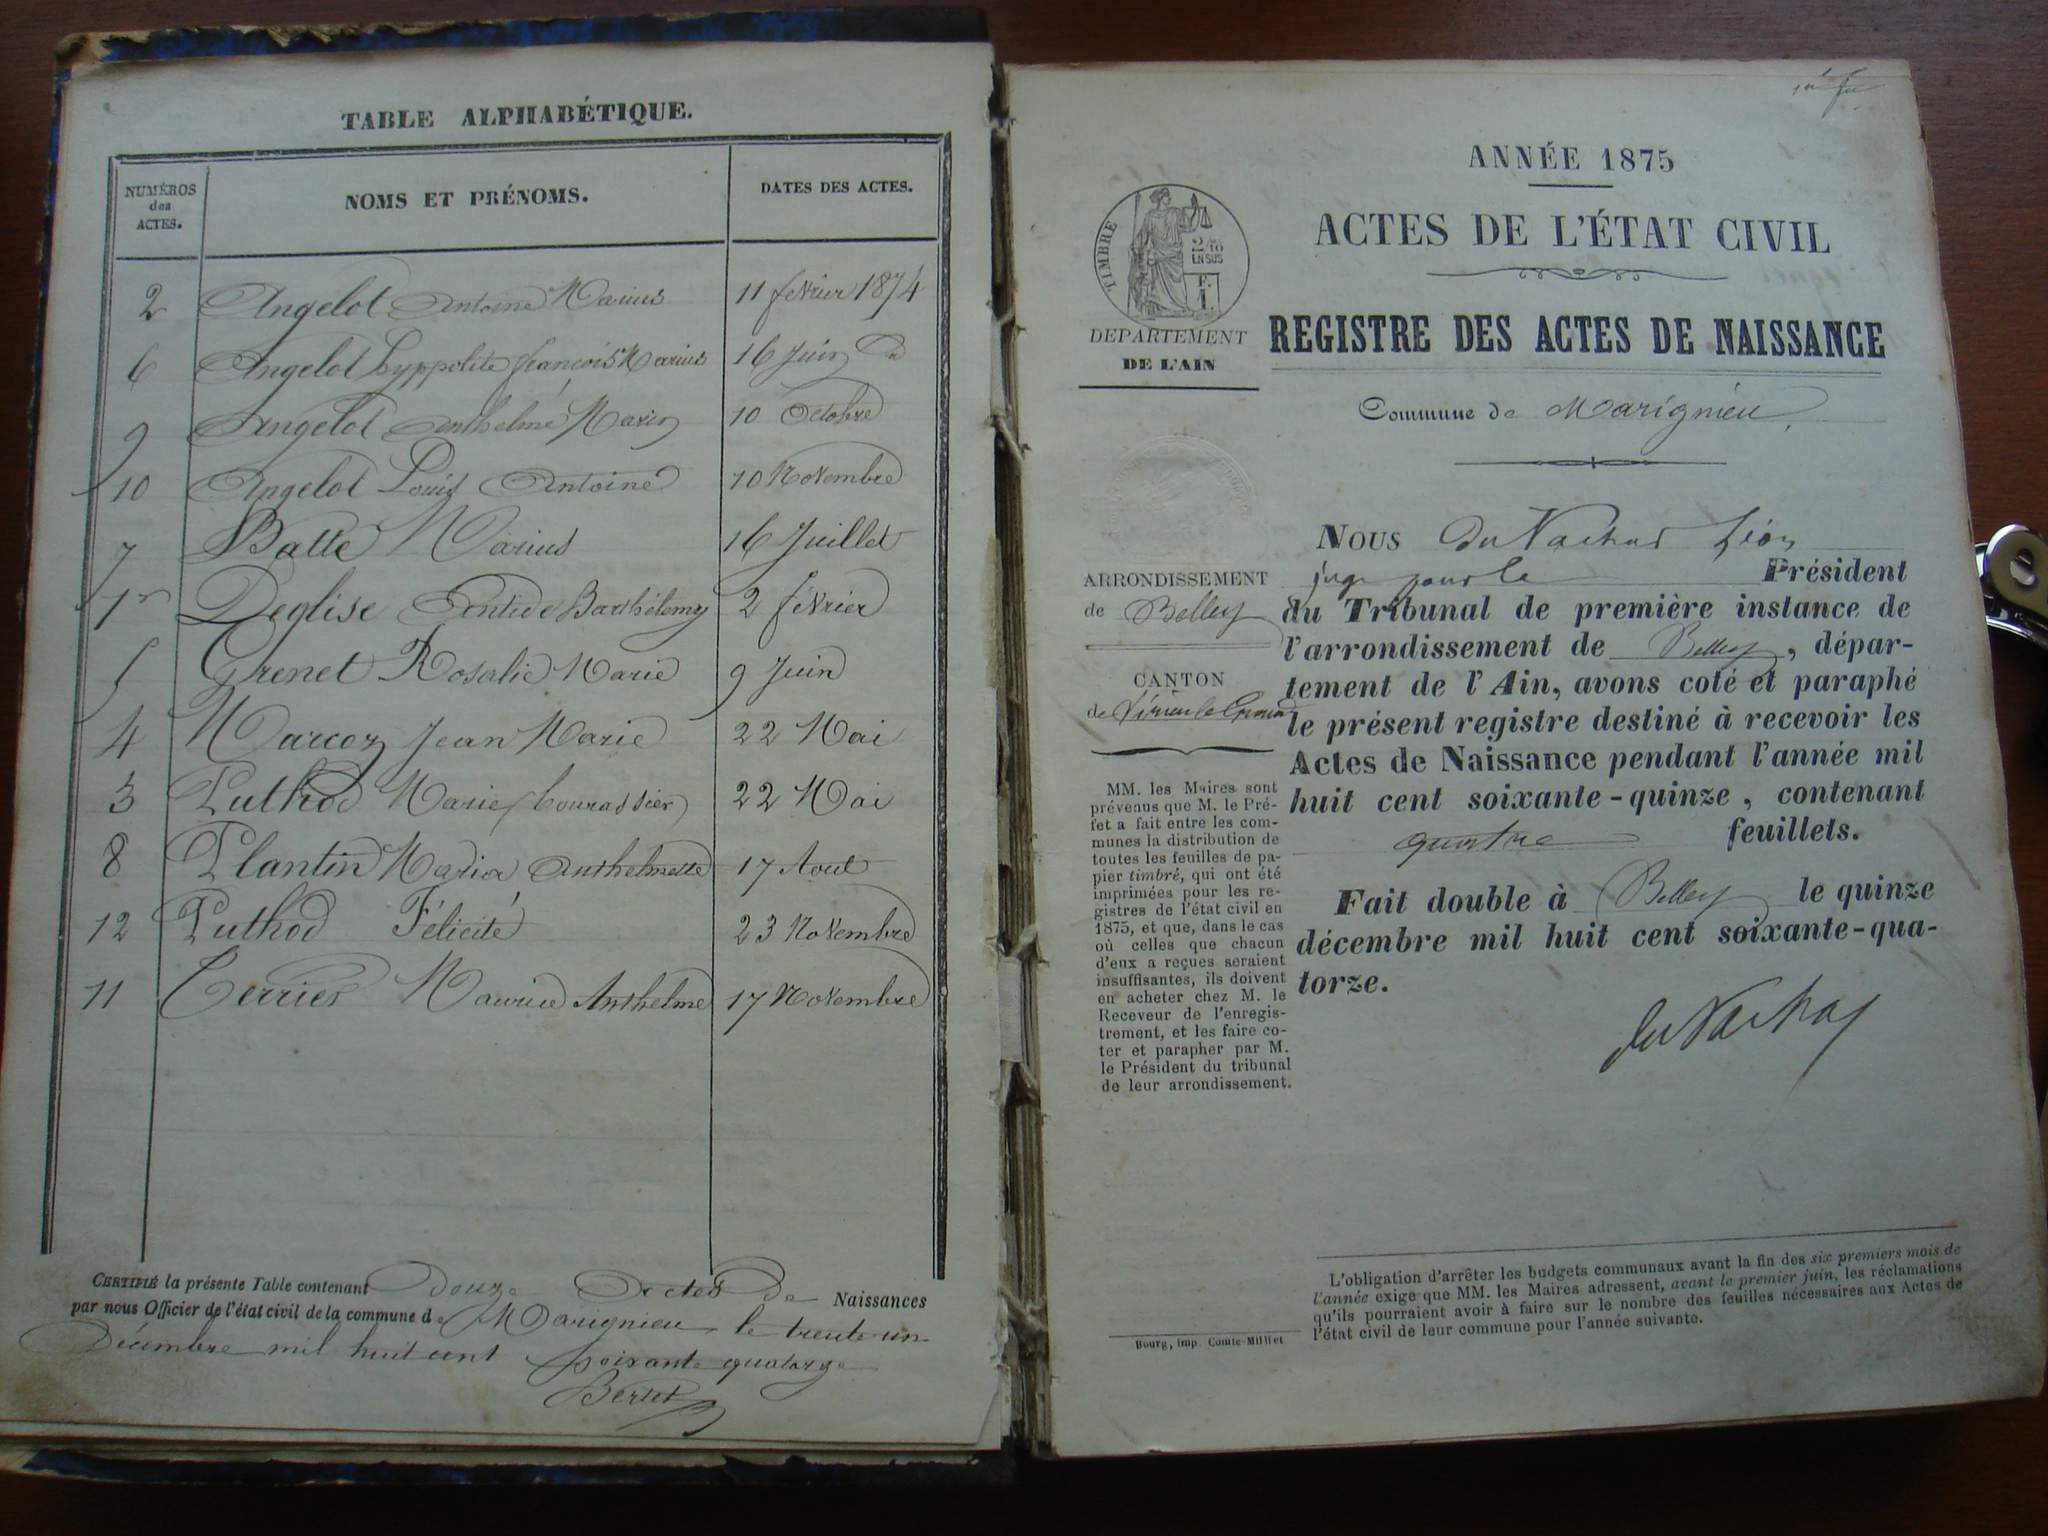 TABLE ALPHABÉTIQUE.
NUMÉROS
des
ACTES.
NOMS ET PRÉNOMS.
DATES DES ACTES.
2 Angelot Antoine Marius 11 février 1874
6 Angelot Hyppolite françois Marius 16 Juin
9 Angelot Anthelme Marin 10 Octobre
10 Angelot Louis Antoine 10 Novembre
7 Batte Marius 16 Juillet
1er Deglise Antide Barthélemy 2 février
5 Grenet Rosalie Marie 9 Juin
4 Marcoz Jean Marie 22 Mai
3 Puthod Marie 22 Mai
8 Plantin Maria Anthelmette 17 Aout
12 Puthod Félicité 23 Novembre
11 Terrier Maurice Anthelme 17 Novembre
CERTIFIÉ la présente Table contenant Douze Actes de Naissances
par nous Officier de l'état civil de la commune de Marignieu le trente un
Décembre mil huit cent soixante quatorze
ANNÉE 1875
ACTES DE L'ÉTAT CIVIL
TIMBRE
2/10
EN SUS
F.
1.
DEPARTEMENT
DE L'AIN
REGISTRE DES ACTES DE NAISSANCE
Commune de Marignieu
ARRONDISSEMENT
de Belley
CANTON
de Virieu le Grand
MM. les Maires sont
prévenus que M. le Pré-
fet a fait entre les com-
munes la distribution de
toutes les feuilles de pa-
pier timbré, qui ont été
imprimées pour les re-
gistres de l'état civil en
1875, et que, dans le cas
où celles que chacun
d'eux a reçues seraient
insuffisantes, ils doivent
en acheter chez M. le
Receveur de l'enregis-
trement, et les faire co-
ter et parapher par M.
le Président du tribunal
de leur arrondissement.
NOUS du Nachat Léon
juge pour le Président
du Tribunal de première instance de
l'arrondissement de Belley, dépar-
tement de l'Ain, avons coté et paraphé
le présent registre destiné à recevoir les
Actes de Naissance pendant l'année mil
huit cent soixante-quinze, contenant
quatre feuillets.
Fait double à Belley le quinze
décembre mil huit cent soixante-qua-
torze.
du Nachat
L'obligation d'arrêter les budgets communaux avant la fin des six premiers mois de
l'année exige que MM. les Maires adressent, avant le premier juin, les réclamations
qu'ils pourraient avoir à faire sur le nombre des feuilles nécessaires aux Actes de
l'état civil de leur commune pour l'année suivante.
Bourg, imp. Comte-Milliet.